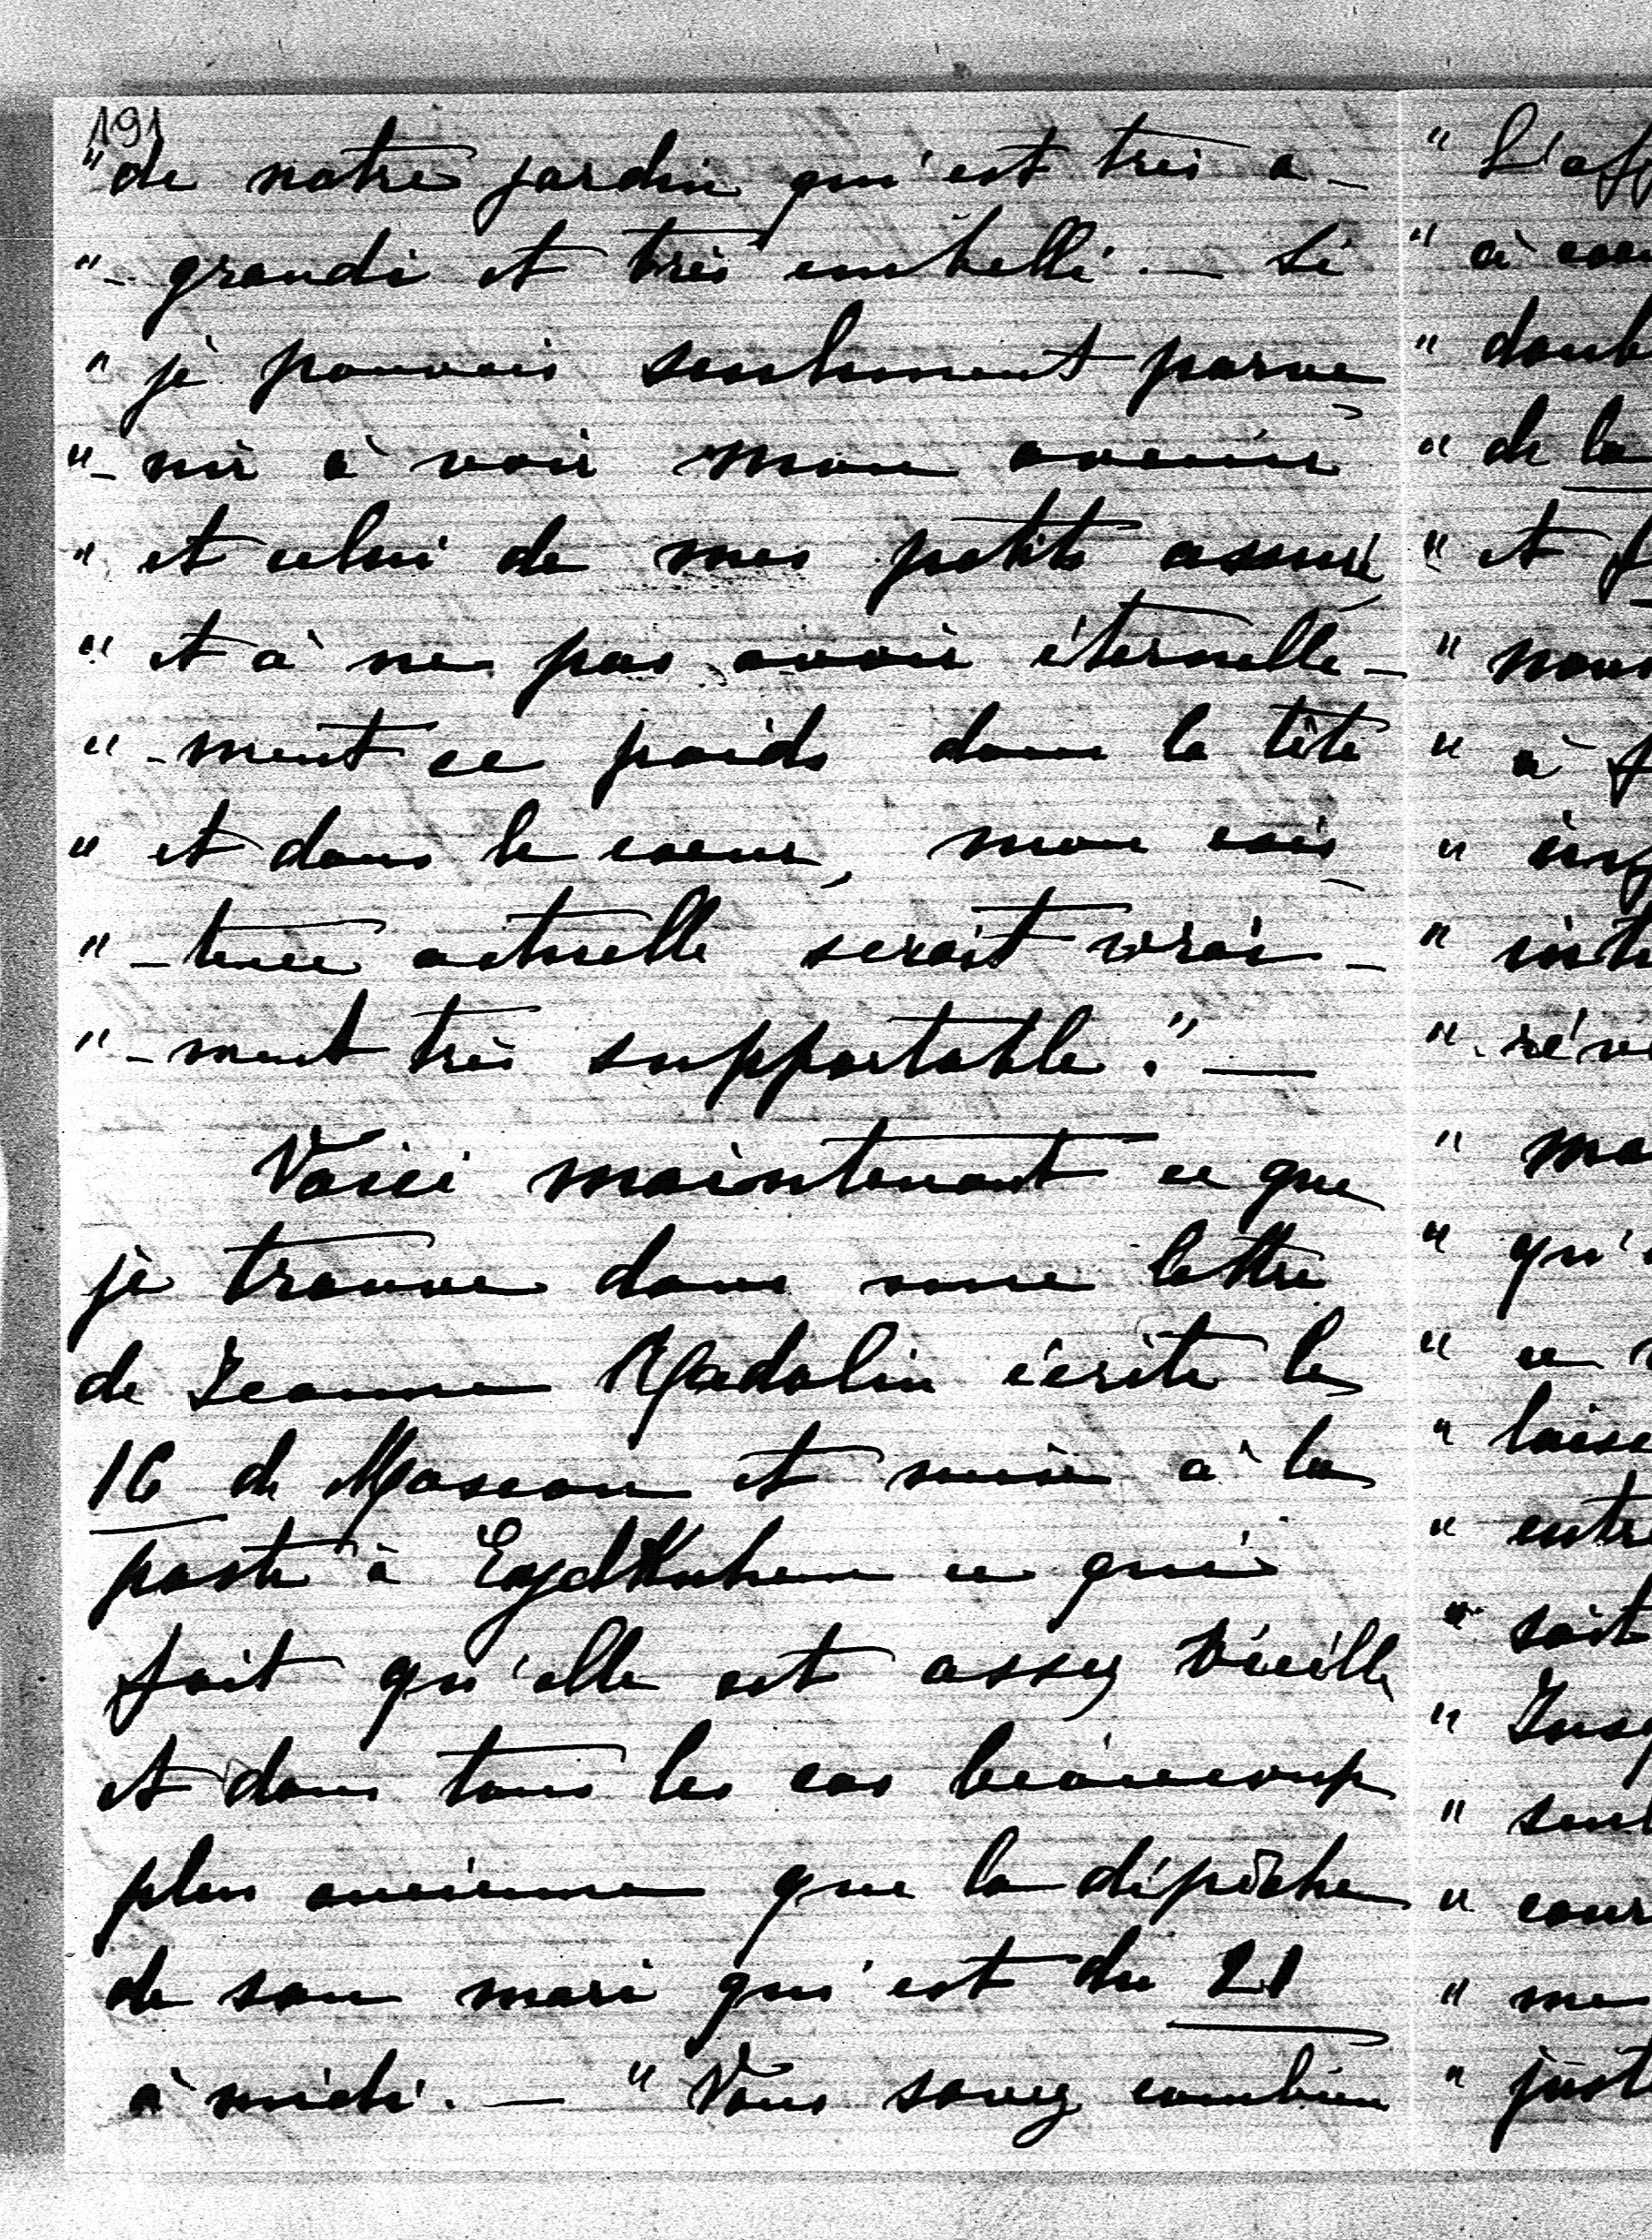 191
"de notre jardin qui est très a-
"- grandi et très embelli. — Si
" je pouvais seulement parve
"- nir à voir mon avenir
" et celui de mes petits assuré
" et à ne pas avoir éternelle-
" -ment ce poids dans la tête
" et dans le coeur, mon exis
" -tence actuelle serait vrai-
" -ment très supportable." —
Voici maintenant ce que
je trouve dans une lettre
de Jeanne Radolin écrite le
16 de Moscou et mise à la
poste à Eydtkuhnen ce qui
fait qu'elle est assez vieille
et dans tous les cas beaucoup
plus ancienne que la dépêche
de son mari qui est du 21
à midi. — " Vous savez combien
" L'aff
" à coeu
" doub
" de la
" et f
" nous
" à f
" int
" rév
" ma
" qu'
" ce
" laiss
" entr
" soit
" Jusq
" seul
" cour
" me
" just